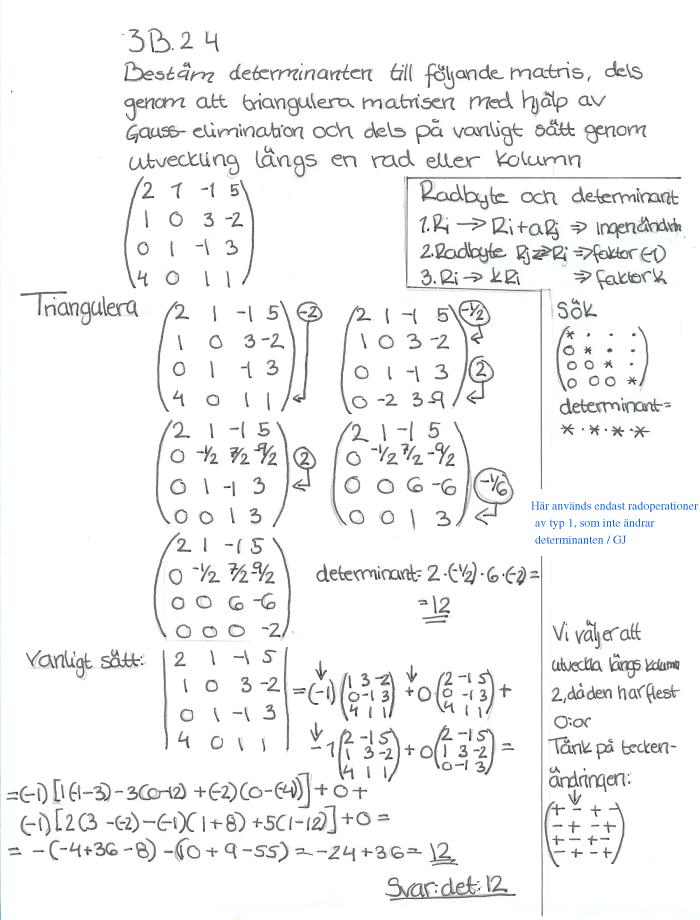 3B.24
Bestäm determinanten till följande matris, dels
genom att triangulera matrisen med hjälp av
Gauss-elimination och dels på vanligt sätt genom
utveckling längs en rad eller kolumn
2 1 -1 5
1 0 3 -2
0 1 -1 3
4 0 1 1
Radbyte och determinant
1. Ri → Ri+aRj ⇒ ingen ändrin
2. Radbyte Rj⇄Ri ⇒ faktor (-1)
3. Ri → kRi ⇒ faktor k
Triangulera
2 1 -1 5 (-2)
1 0 3 -2
0 1 -1 3
4 0 1 1
2 1 -1 5 (-1/2)
1 0 3 -2
0 1 -1 3 (2)
0 -2 3 -9
Sök
* · · ·
0 * · ·
0 0 * ·
0 0 0 *
determinant=
* · * · * · *
2 1 -1 5
0 -1/2 7/2 -9/2 (2)
0 1 -1 3
0 0 1 3
2 1 -1 5
0 -1/2 7/2 -9/2
0 0 6 -6 (-1/6)
0 0 1 3
Här används endast radoperationer
av typ 1, som inte ändrar
determinanten / GJ
2 1 -1 5
0 -1/2 7/2 -9/2
0 0 6 -6
0 0 0 -2
determinant= 2·(-1/2)·6·(-2)=
=12
Vanligt sätt:
2 1 -1 5
1 0 3 -2
0 1 -1 3
4 0 1 1
=(-1) (1 3 -2 / 0 -1 3 / 4 1 1) +0 (2 -1 5 / 0 -1 3 / 4 1 1) +
-1 (2 -1 5 / 1 3 -2 / 4 1 1) +0 (2 -1 5 / 1 3 -2 / 0 -1 3) =
Vi väljer att
utveckla längs kolumn
2, då den har flest
0:or
Tänk på tecken-
ändringen:
+ - + -
- + - +
+ - + -
- + - +
=(-1)[1(-1-3)-3(0-12)+(-2)(0-(-4))]+0+
(-1)[2(3-(-2)-(-1)(1+8)+5(1-12)]+0=
= -(-4+36-8)-(10+9-55)=-24+36=12
Svar: det: 12